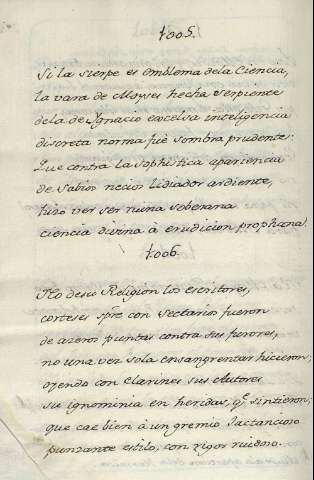 1005.
Si la sierpe es emblema dela Ciencia,
la vara de Moyses hecha serpiente
dela de Ignacio excelsa inteligencia
discreta norma fuè sombra prudente:
Que contra la sophistica apariencia
de sabios necios lidiador ardiente,
hizo ver ser ruina soberana
ciencia divina à erudicion prophana.
1006.
No de su Religion los escritores,
corteses spre con Sectarios fueron
de azeros puntas contra sus furores,
no una vez sola ensangrentar hicieron;
oyendo con clarines sus Autores
su ignominia en heridas, q.e sintieron;
que cae bien à un gremio jactancioso
punzante estilo, con rigor ruidoso.